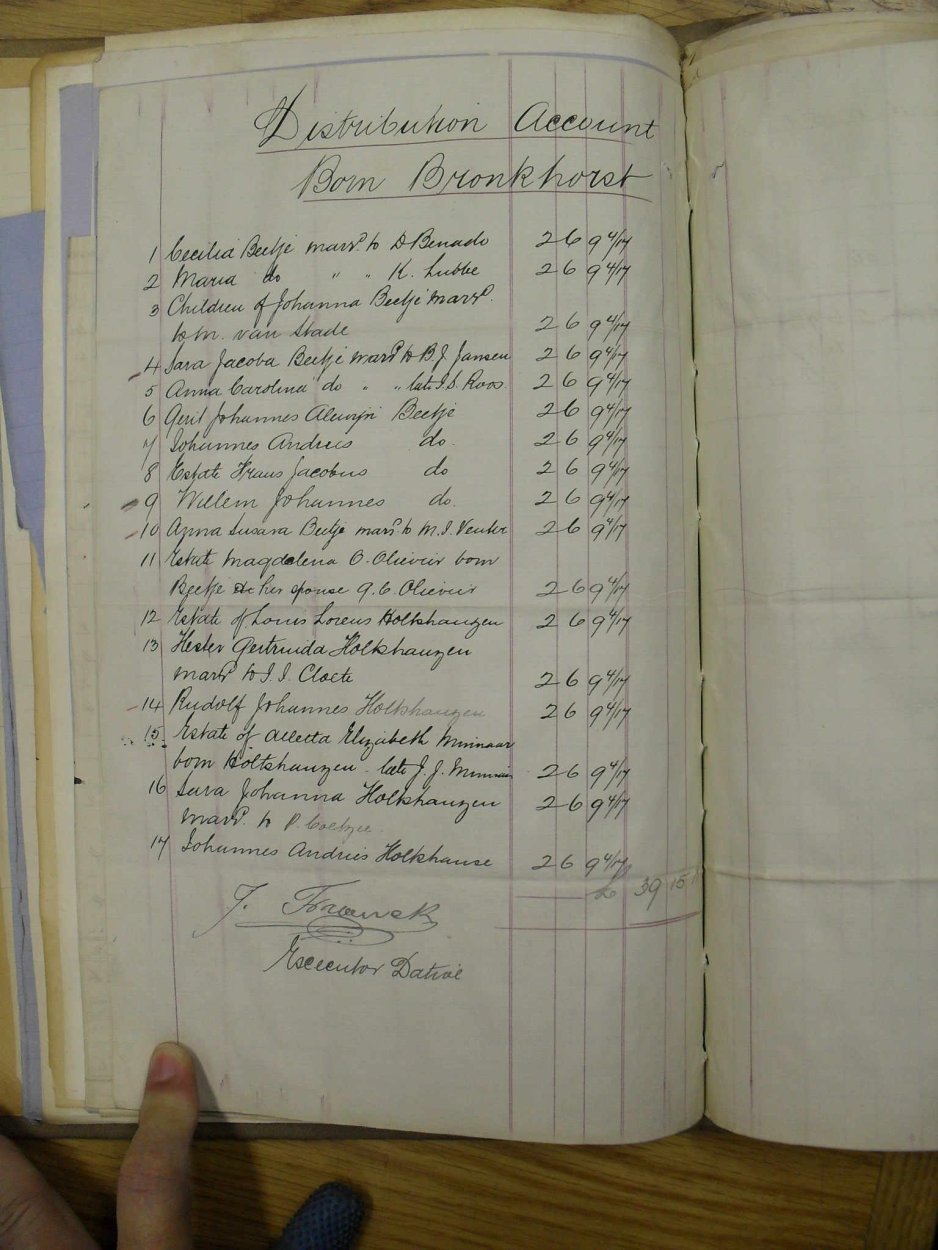 Distribution Account
Born Bronkhorst
1 Cecilia Beetje marrd to D Benado 2 6 9 4/17
2 Maria do " " K. Lubbe 2 6 9 4/17
3 Children of Johanna Beetje marrd.
to M. van Stade 2 6 9 4/17
4 Sara Jacoba Beetje marrd to B. J. Jansen 2 6 9 4/17
5 Anna Carolina do " " late I. S. Roos. 2 6 9 4/17
6 Gerit Johannes Alewyn Beetje 2 6 9 4/17
7 Johannes Andries do. 2 6 9 4/17
8 Estate Frans Jacobus do 2 6 9 4/17
9 Willem Johannes do. 2 6 9 4/17
10 Anna Susara Beetje marrd to M. I. Venter 2 6 9 4/17
11 Estate Magdalena O. Olivier born
Beetje & her spouse G. C. Olivier 2 6 9 4/17
12 Estate of Louis Lorens Holtshauzen 2 6 9 4/17
13 Hester Gertruida Holtshauzen
marrd to I. I. Cloete 2 6 9 4/17
14 Rudolf Johannes Holtshauzen 2 6 9 4/17
15 Estate of Alletta Elizabeth Minnaar
born Holtshauzen late J. J. Minnaar 2 6 9 4/17
16 Sara Johanna Holtshauzen 2 6 9 4/17
marrd. to P. Coetzee.
17 Johannes Andries Holtshause 2 6 9 4/17
£ 39 15 1
Executor Dative